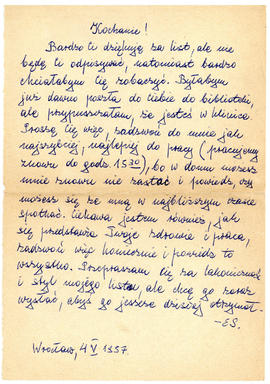 Kochanie!
Bardzo Ci dziękuję za list, ale nie
będę Ci odpisywać, natomiast bardzo
chciałabym Cię zobaczyć. Byłabym
już dawno poszła do Ciebie do biblioteki,
ale przypuszczałam, że jesteś w klinice.
Proszę Cię więc, zadzwoń do mnie jak
najszybciej, najlepiej do pracy (pracujemy
znowu do godz. 15 30), bo w domu możesz
mnie znowu nie zastać i powiedz, czy
możesz się ze mną w najbliższym czasie
spotkać. Ciekawa jestem również, jak
się przedstawia Twoje zdrowie i praca,
zadzwoń więc koniecznie i powiedz to
wszystko. Przepraszam Cię za lakoniczność
i styl mojego listu, ale chcę go zaraz
wysłać, abyś go jeszcze dzisiaj otrzymał.
-ES.
Wrocław, 4 V 1957.